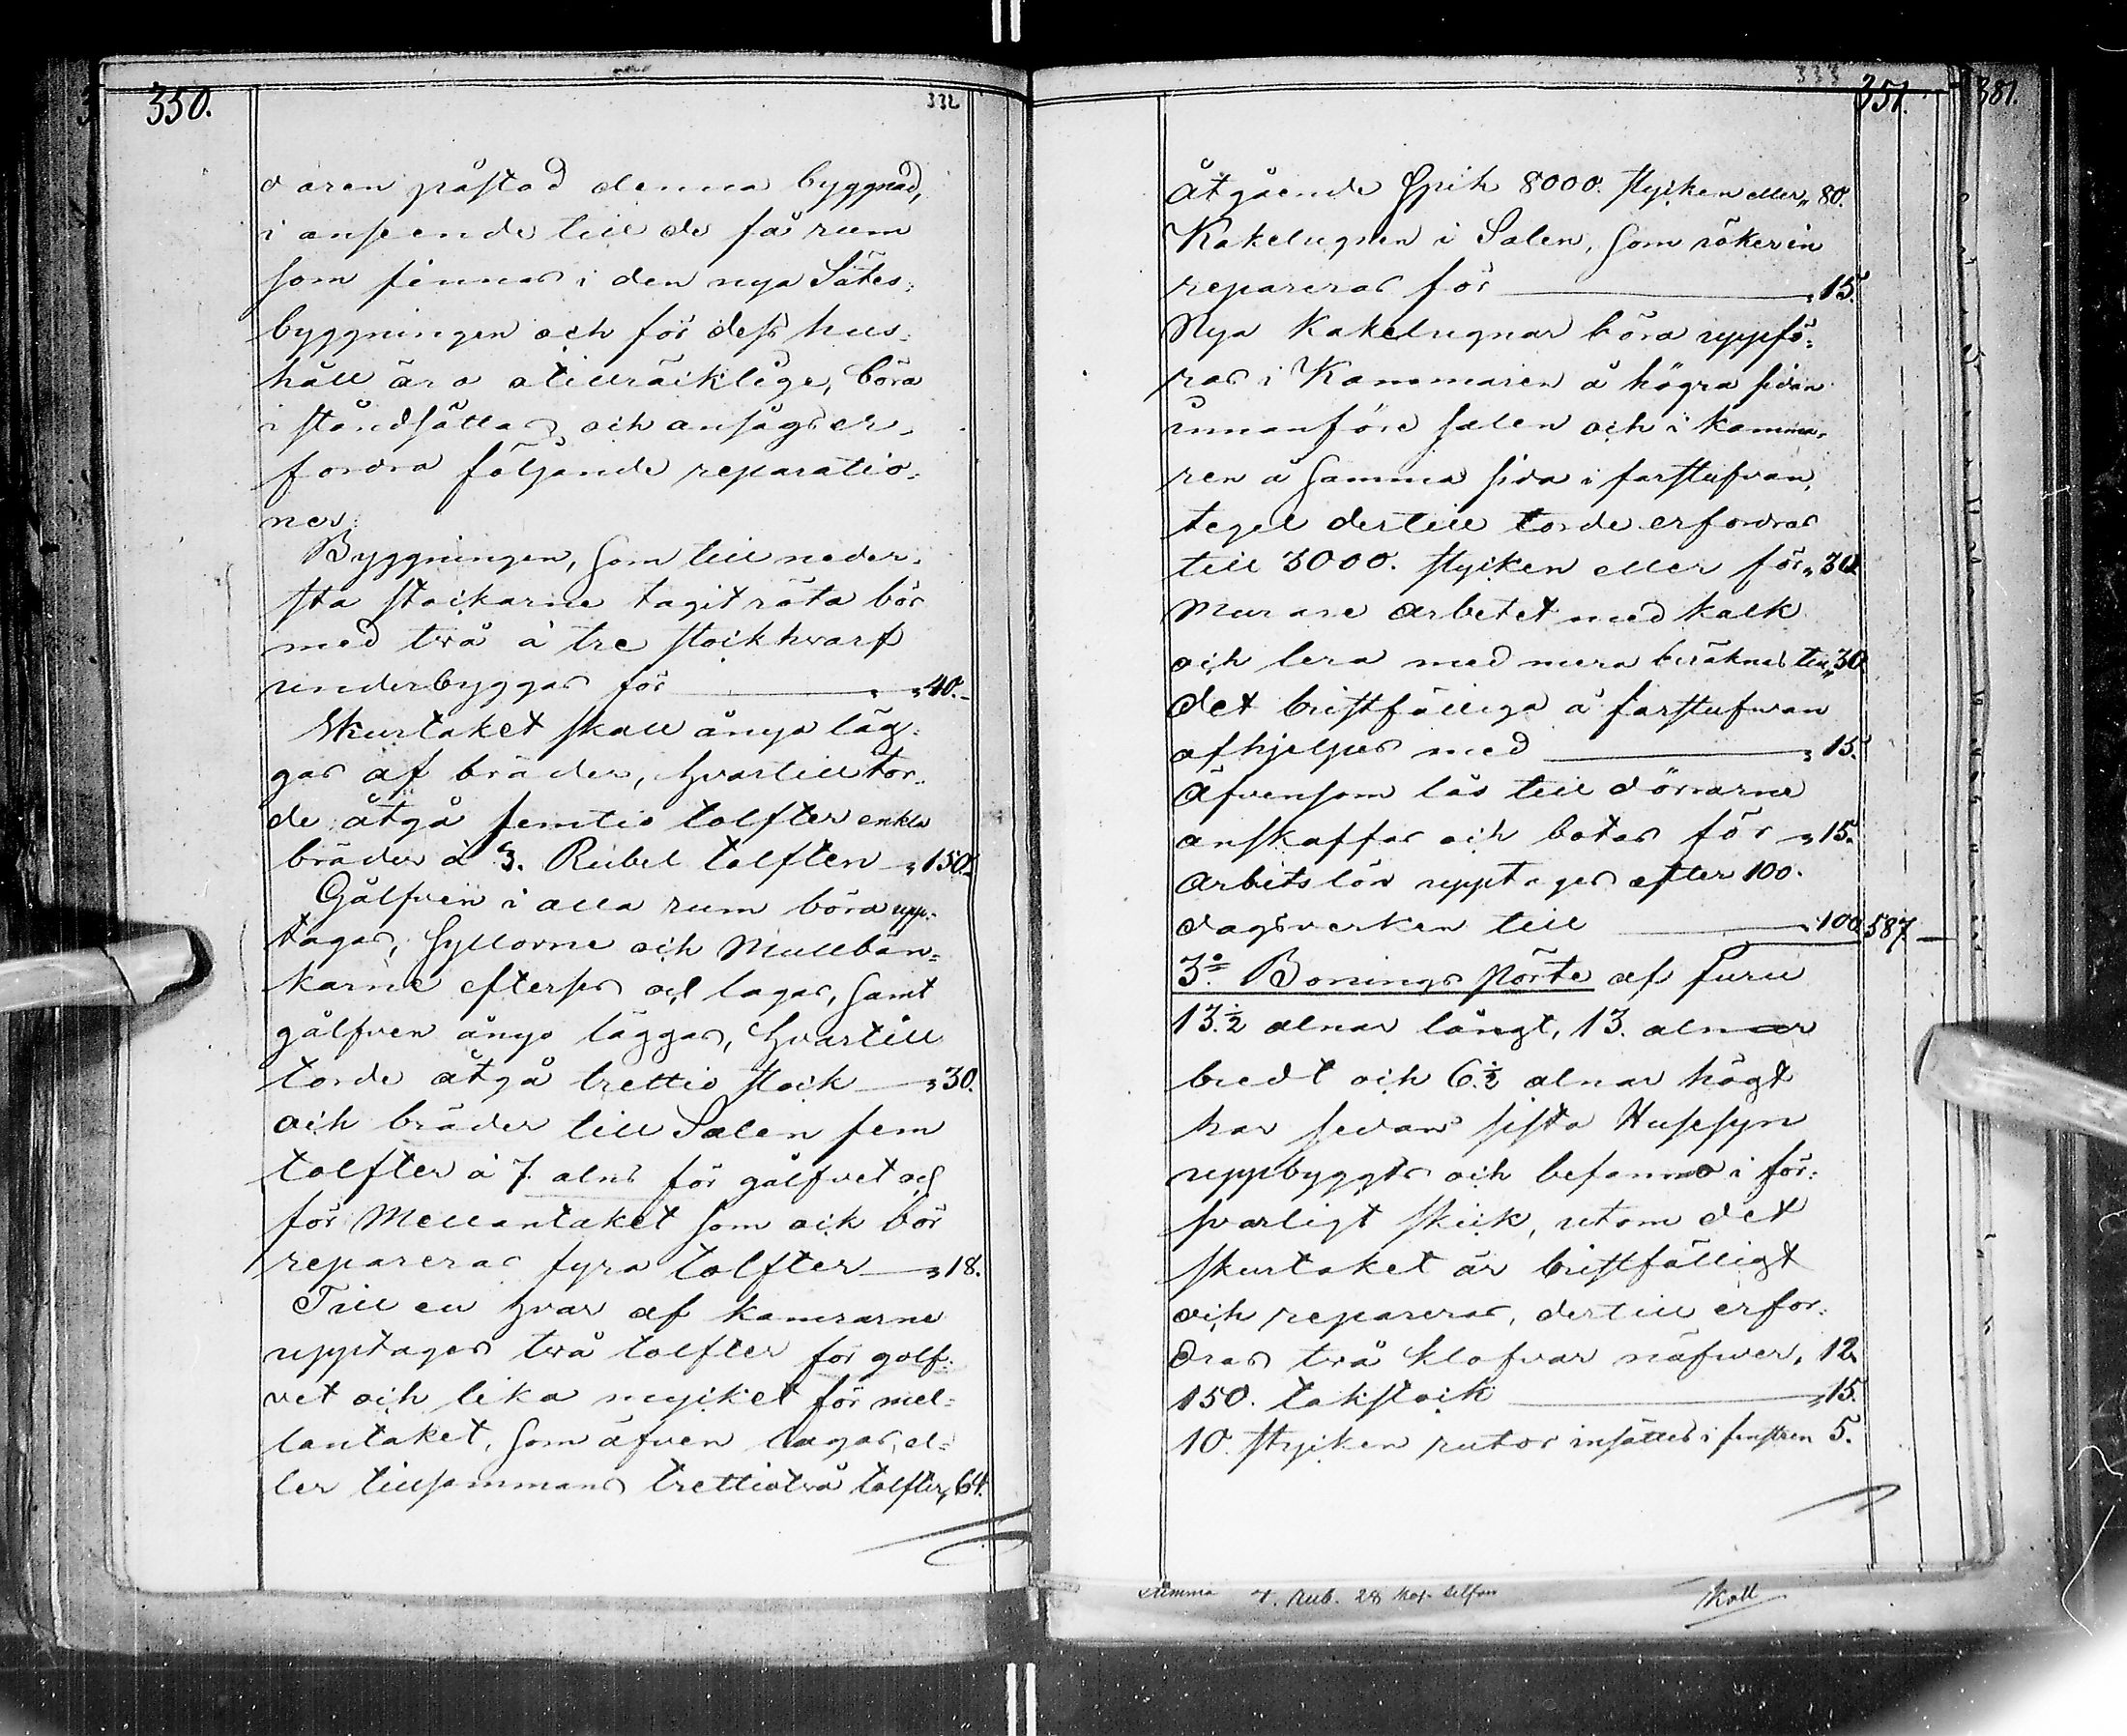 350.
332
daren påstod denna byggnad,
i anseende till de få rum
som finnas i den nya Sätes-
byggningen och för dess hus-
håll äro otillräcklige, böra
i ståndsättas och ansågs er-
fordra följande reparatio-
ner:
Byggningen, som till neder-
sta stockarne tagit röta bör
med två à tre stockhvarf
underbyggas för „ 40.-
Skurtaket skall ånyo läg-
gas af bräder, hvartill tor-
de åtgå femtio tolfter enkla
bräder à 3. Rubel tolften „ 150.-
Gålfven i alla rum böra upp-
tagas, Syllorne och Mullbän-
karne efterses och lagas, samt
gålfven ånyo läggas, hvartill
torde åtgå trettio stock „ 30.
och bräder till Salen fem
tolfter à 7. alns för gålfvet och
för Mellantaket som ock bör
repareras fyra tolfter „ 18.
Till en hvar af kamrarne
upptages två tolfter för golf-
vet och lika mycket för mel-
lantaket, som äfven lagas, el-
ler tillsammans trettiotvå tolfter, 64.
333
351.
381.
åtgående Spik 8000. stycken eller „ 80.
Kakelugnen i Salen, som röker in
repareras för „ 15.
Nya Kakelugnar böra uppfö-
ras i Kammaren å högra sidan
innanföre salen och i kamma-
ren å samma sida i farstufvan,
tegel dertill torde erfordras
till 3000. stycken eller för „ 30.
Murare arbetet med kalk
och lera med mera beräknas till „ 30
det bristfälliga å farstufvan
afhjelpes med „ 15.
Äfvensom lås till dörrarne
anskaffas och botas för „ 15.
Arbetslön upptages efter 100.
dagsverken till „ 100 587 —
3:o Bonings pörte af furu
13.½ alnar långt, 13. alnar
bredt och 6.½ alnar högt
har sedan sista Husesyn
uppbyggts och befanns i för-
svarligt skick, utom det
skurtaket är bristfälligt
och repareras, dertill erfor-
dras två klofvar näfver, 12.
150. takstock „ 15.
10. stycken rutor insättes i fenstren 5.
stämma 4. Rub. 28 kop. silfver
Koll